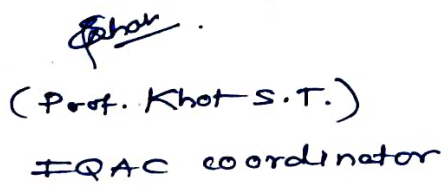 (Prof. Khot S.T.)
IQAC coordinator